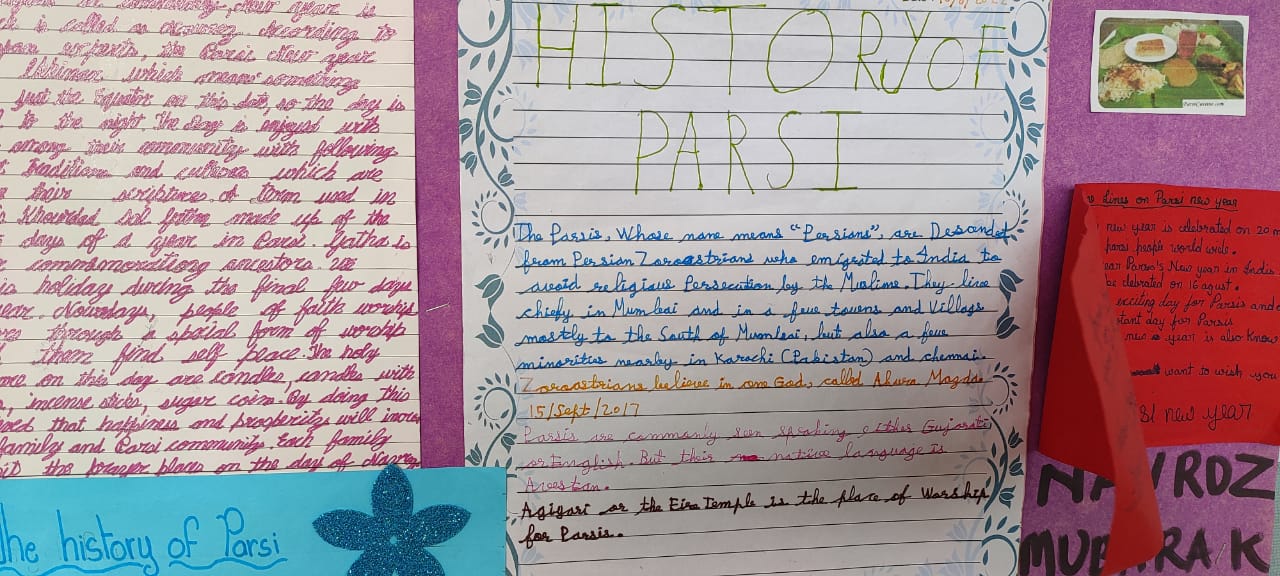 New year is
is called as Nowruz. According to
scripts, the Parsi New year
which means something
just the Equator on this date, so the day is
to the night. The Day is enjoyed with
among their community with following
traditions and cultures which are
their scriptures. A term used in
Khordad Sal being made up of the
days of a year in Parsi. Gatha is
commemorationg ancestors. We
is holiday during the final few days
year. Nowrdays, people of faith worship
through a special form of worship
them find self peace. The holy
on this day are candles, candles with
, incense sticks, sugar coin. By doing this
that happiness and prosperity will
family and Parsi community. Each family
the prayer place on the day of
The history of Parsi
HISTORY OF
PARSI
The Parsis, Whose name means "Persians", are Desandet
from Persian Zoroastrians who emigrated to India to
avoid religious Persecution by the Muslims. They live
chiefly in Mumbai and in a few towens and Village
mostly to the South of Mumbai, but also a few
minorities nearby in Karachi (Pakistan) and chennai.
Zoroastrians believe in one God, called Ahura Mazda
15/Sept/2017
Parsis are commanly seen speaking either Gujarati
or English. But their native language is
Avestan.
Agigari or the Fire Temple is the place of Worship
for Parsis.
ParsiCuisine.com
Lines on Parsi new year
new year is celebrated on 20 m
people world wide.
Parsi's New year in India
be clebrated on 16 agust.
exciting day for Parsis and
tant day for Parsis
new year is also Know
want to wish you
si new year
NAVROZ
MUBARAK